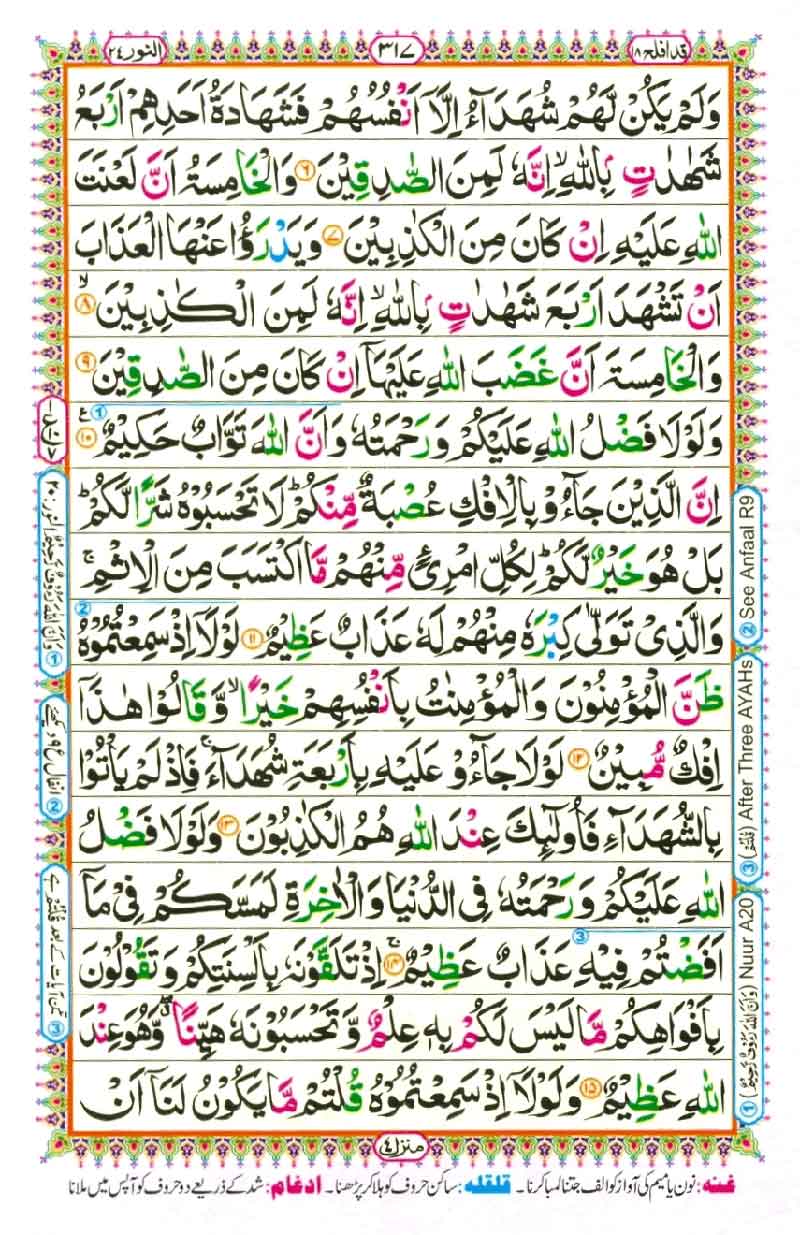 قد افلح ۱۸
۳۱۷
النور ۲۴
وَلَمْ يَكُنْ لَّهُمْ شُهَدَآءُ اِلَّاۤ اَنْفُسُهُمْ فَشَهَادَةُ اَحَدِهِمْ اَرْبَعُ
شَهٰدٰتٍۭ بِاللّٰهِ ۙ اِنَّهٗ لَمِنَ الصّٰدِقِيْنَ ۶ وَالْخَامِسَةُ اَنَّ لَعْنَتَ
اللّٰهِ عَلَيْهِ اِنْ كَانَ مِنَ الْكٰذِبِيْنَ ۷ وَيَدْرَؤُا عَنْهَا الْعَذَابَ
اَنْ تَشْهَدَ اَرْبَعَ شَهٰدٰتٍۭ بِاللّٰهِ ۙ اِنَّهٗ لَمِنَ الْكٰذِبِيْنَ ۙ ۸
وَالْخَامِسَةَ اَنَّ غَضَبَ اللّٰهِ عَلَيْهَاۤ اِنْ كَانَ مِنَ الصّٰدِقِيْنَ ۹
وَلَوْلَا فَضْلُ اللّٰهِ عَلَيْكُمْ وَرَحْمَتُهٗ وَاَنَّ اللّٰهَ تَوَّابٌ حَكِيْمٌ ۱۰ ع 1
اِنَّ الَّذِيْنَ جَآءُوْ بِالْاِفْكِ عُصْبَةٌ مِّنْكُمْ ؕ لَا تَحْسَبُوْهُ شَرًّا لَّكُمْ ؕ
بَلْ هُوَ خَيْرٌ لَّكُمْ ؕ لِكُلِّ امْرِیٍٔ مِّنْهُمْ مَّا اكْتَسَبَ مِنَ الْاِثْمِ ۚ
وَالَّذِيْ تَوَلّٰى كِبْرَهٗ مِنْهُمْ لَهٗ عَذَابٌ عَظِيْمٌ ۱۱ لَوْلَاۤ اِذْ سَمِعْتُمُوْهُ 2
ظَنَّ الْمُؤْمِنُوْنَ وَالْمُؤْمِنٰتُ بِاَنْفُسِهِمْ خَيْرًا ۙ وَّقَالُوْا هٰذَاۤ
اِفْكٌ مُّبِيْنٌ ۱۲ لَوْلَا جَآءُوْ عَلَيْهِ بِاَرْبَعَةِ شُهَدَآءَ ۚ فَاِذْ لَمْ يَاْتُوْا
بِالشُّهَدَآءِ فَاُولٰٓئِكَ عِنْدَ اللّٰهِ هُمُ الْكٰذِبُوْنَ ۱۳ وَلَوْلَا فَضْلُ
اللّٰهِ عَلَيْكُمْ وَرَحْمَتُهٗ فِي الدُّنْيَا وَالْاٰخِرَةِ لَمَسَّكُمْ فِيْ مَاۤ
اَفَضْتُمْ فِيْهِ عَذَابٌ عَظِيْمٌ ۚ ۱۴ اِذْ تَلَقَّوْنَهٗ بِاَلْسِنَتِكُمْ وَتَقُوْلُوْنَ 3
بِاَفْوَاهِكُمْ مَّا لَيْسَ لَكُمْ بِهٖ عِلْمٌ وَّتَحْسَبُوْنَهٗ هَيِّنًا ۖ وَّهُوَ عِنْدَ
اللّٰهِ عَظِيْمٌ ۱۵ وَلَوْلَاۤ اِذْ سَمِعْتُمُوْهُ قُلْتُمْ مَّا يَكُوْنُ لَنَاۤ اَنْ
منزل ۴
1 (وَاَنَّ اللّٰهَ رَءُوْفٌ رَّحِيْمٌ) Nuur A20
3 After Three AYAHs
2 See Anfaal R9
1 وَاَنَّ اللّٰهَ رَءُوْفٌ رَّحِيْمٌ النور: ۲۰
2 انفال ع ۹ دیکھئے
غنه: نون یا میم کی آواز کو الف جتنا لمبا کرنا ۔ قلقله: ساکن حروف کو ہلا کر پڑھنا ۔ ادغام: شد کے ذریعے دو حروف کو آپس میں ملانا